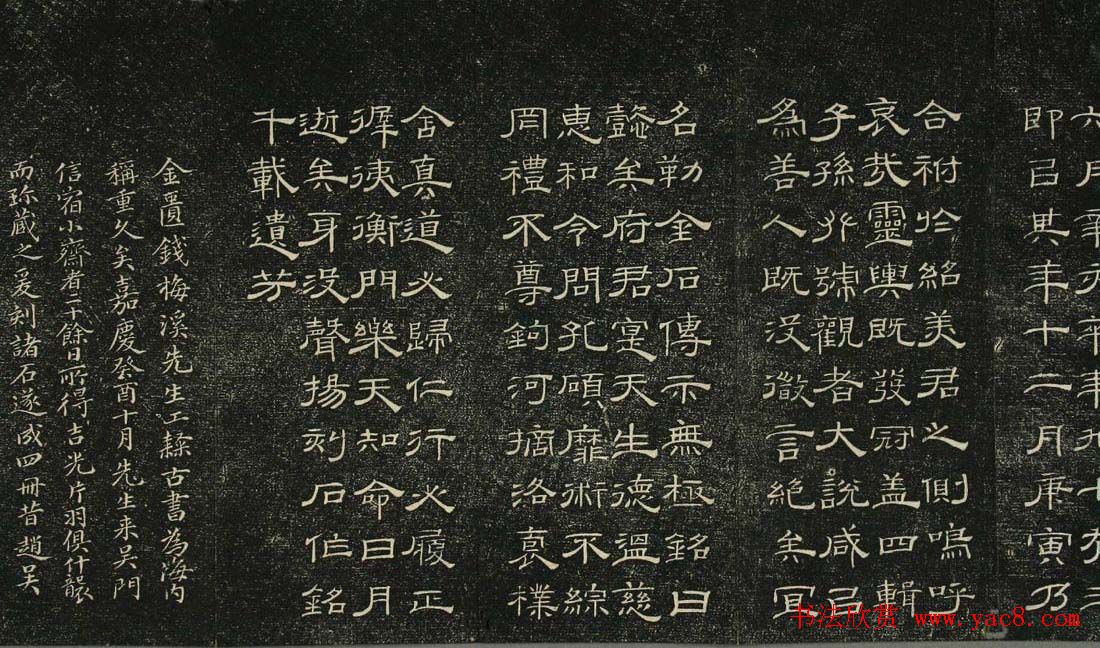 六月辛亥卒九十有三
即已其年十二月庚寅乃
合祔於紹美君之側嗚呼
哀哉靈輿既發冠蓋四輯
子孫行號觀者大說咸曰
為善人既沒徽言絕矣宜
名勒金石傳示無極銘曰
懿矣府君寔天生德溫慈
惠和令問孔碩靡術不綜
罔禮不尊鉤河摘洛裒樸
含真道必歸仁行必履正
徲侇衡門樂天知命日月
逝矣身沒聲揚刻石作銘
千載遺芳
金匱錢梅溪先生工隸古書為海內
稱重久矣嘉慶癸酉十月先生來吳門
信宿小齋者二十餘日所得吉光片羽俱什襲
而珍藏之爰刻諸石遂成四冊昔趙吳
书法欣赏 www.yac8.com